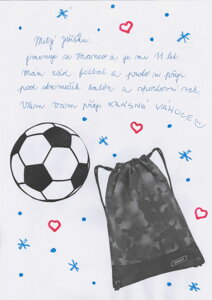 Milý Ježíšku,
jmenuji se Franco a je mi 11 let
Mám rád fotbal a proto si přeji
pod stromeček balón a sportovní vak.
Všem Vám přeji KRÁSNÉ VÁNOCE